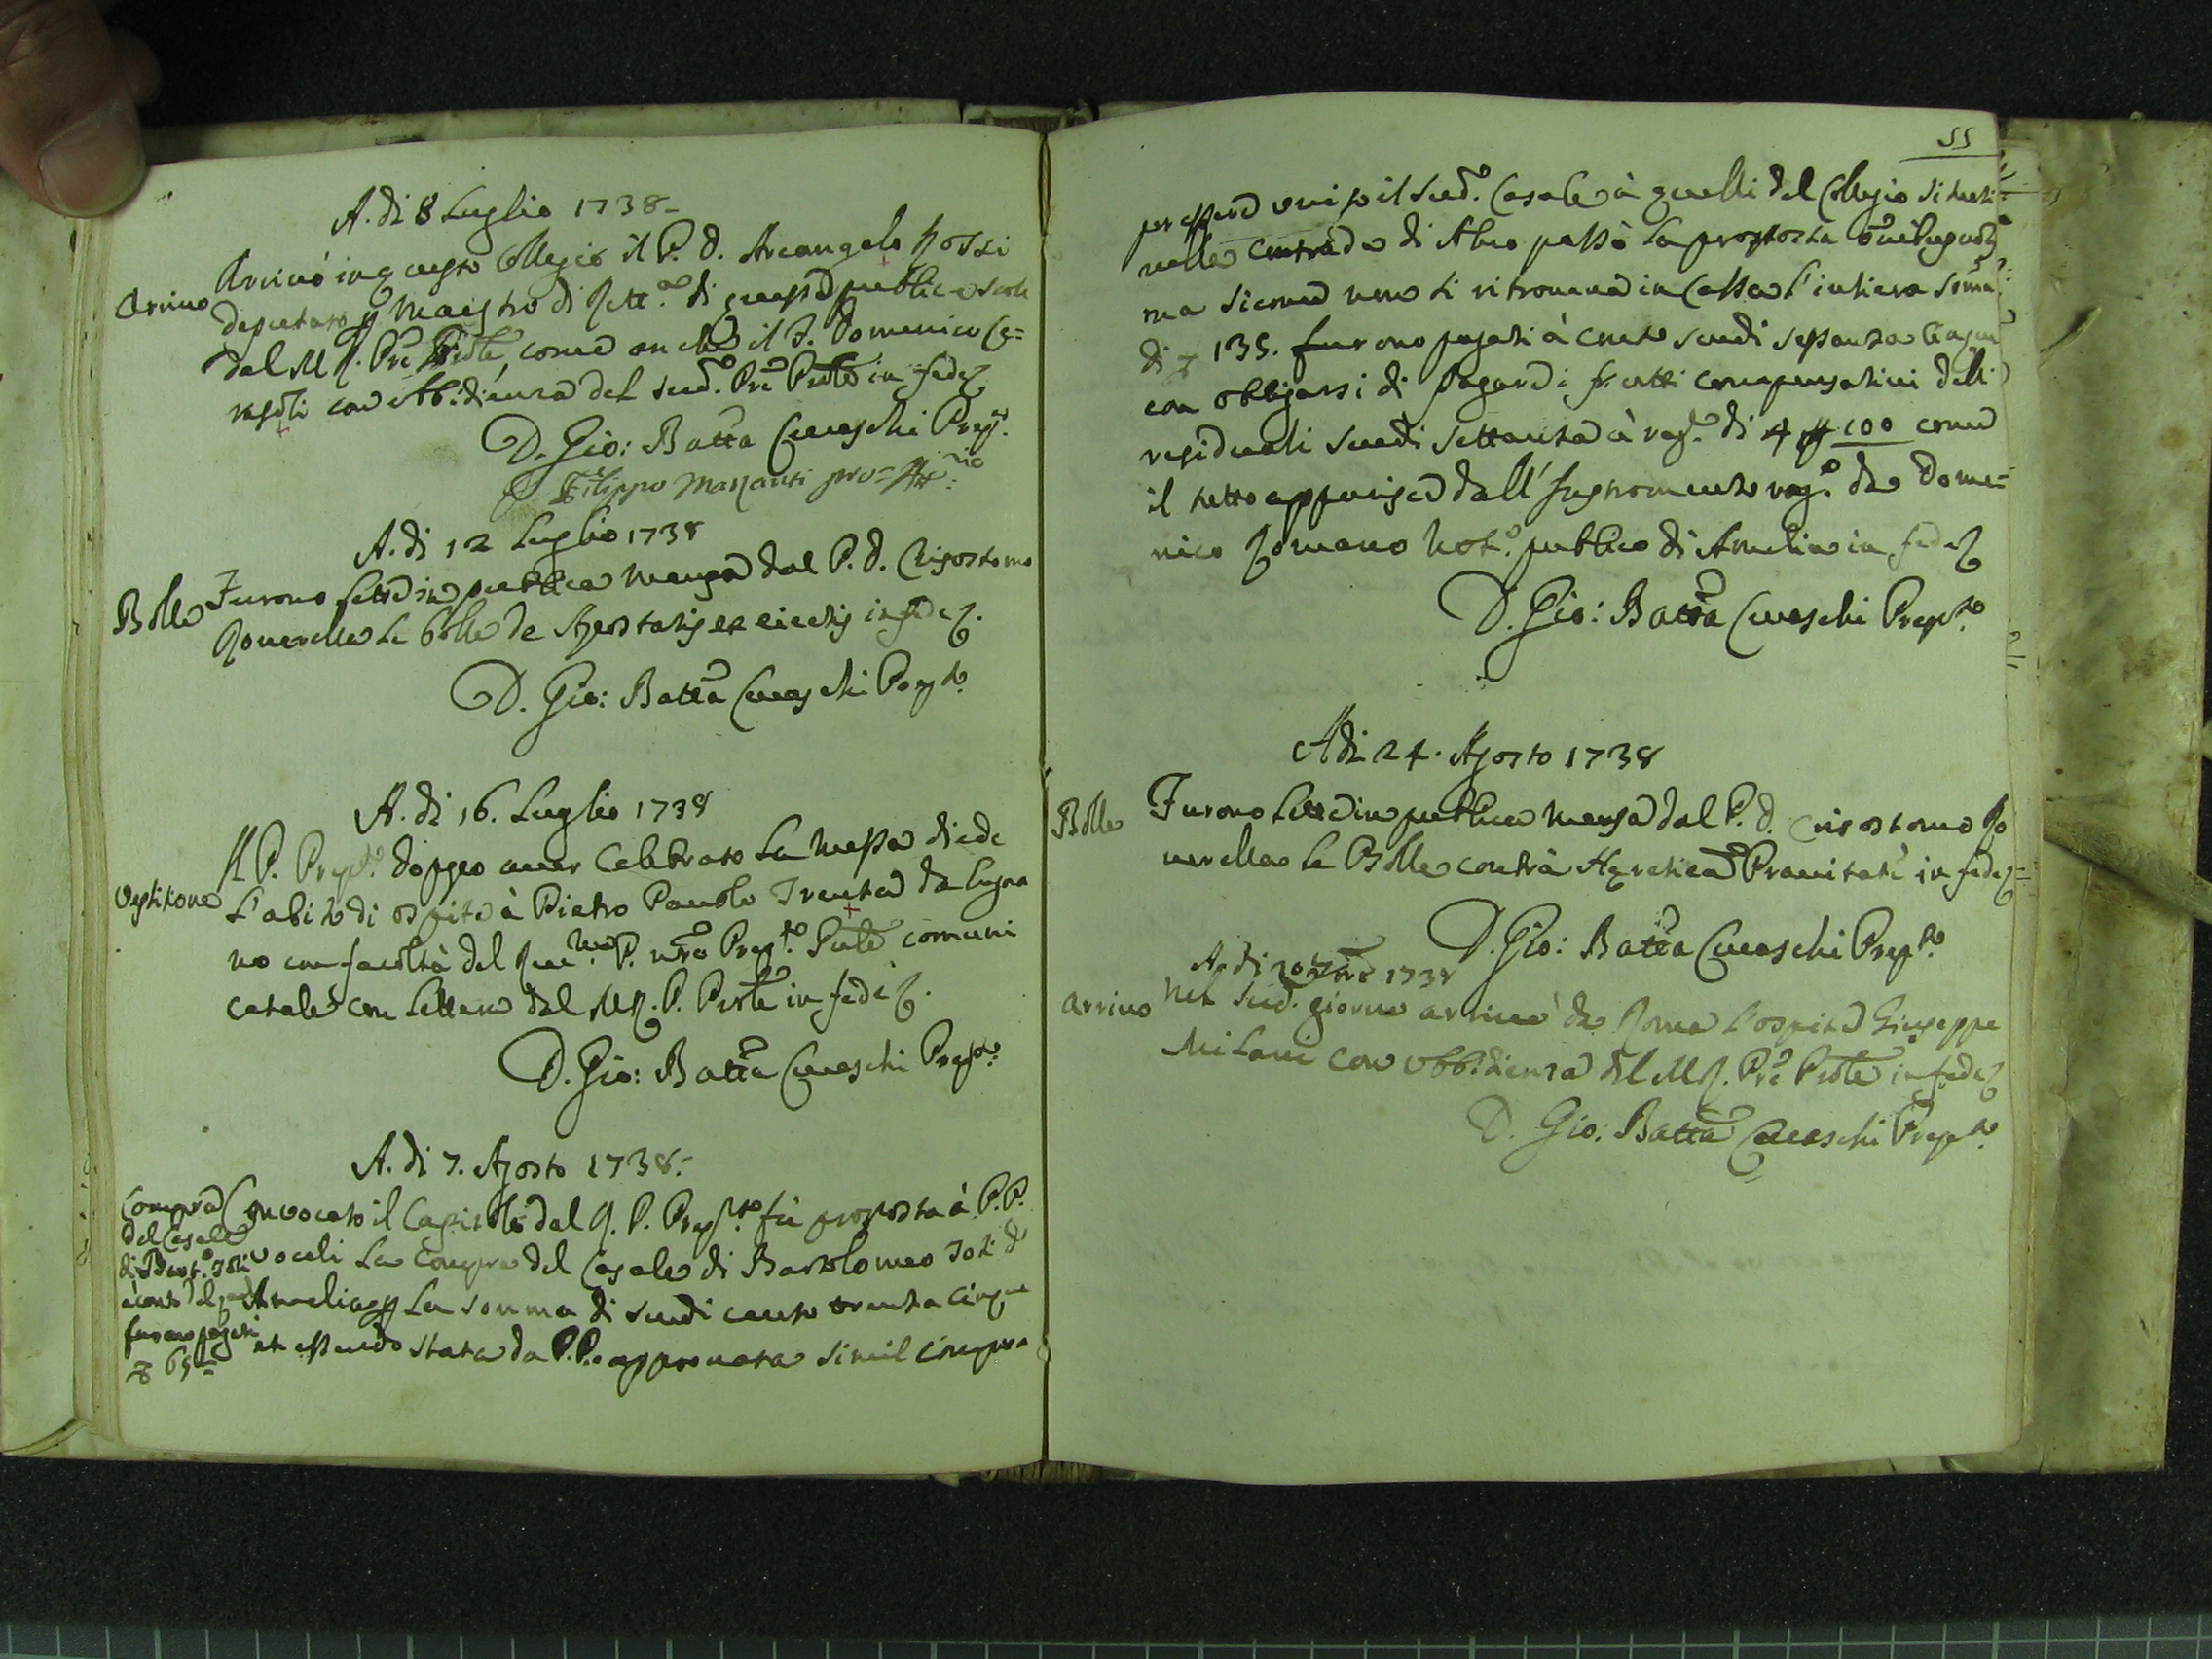 A. di 8 Luglio 1738-
Arrivo
Arrivò in questo Collegio il P. D. Arcangelo Rossi
deputato p Maestro di Rett.ca di queste publice scole
dal M R. Pre Prole, come anche il F. Domenico Ce=
con obbidienza del sud.o Pre Prole in fede
D. Gio: Batta Cevaschi Prep.to
Filippo Manzanti pro=Att:rio
A. di 12 Luglio 1738
Bolle
Furono lette in publica mensa dal P. D. Crisostomo
Roverella le bolle de Apostatis et eiectis in fede
D. Gio: Batta Cevaschi Prep.to
A. di 16. Luglio 1738
Vestitione
Il P. Prep.to doppo aver celebrato la messa diede
l'abito di ospite à Pietro Paulo Trenta da Lugna
no con facoltà del Rev.mo P. nro Prep.to Gnle comuni
catale con lettera dal M R. P. Prole in fede
D. Gio: Batta Cevaschi Prep.to
A. di 7. Agosto 1738.-
Compra
del Casale
di Bart.o
à conto del
furono pagati
65=
Convocato il Capitolo dal R. P. Prep.to fù proposta à P.P.
vocali la compra del Casale di Bartolomeo d
Amelia p la somma di scudi cento trenta cinque
et essendo stata da P.P. approvata simil compra
55
per essere unito il sud.o Casale à quelli del Collegio situati
nella contrada di passò la proposta
ma siccome non si ritrovava in Cassa l'intiera somma
di 135. furono pagati à conto scudi sessanta cinque
con obbligarsi di pagare i frutti compensativi delli
residuali scudi settanta à rag.e di 4 p 100 come
il tutto apparisce dall'Instromento rog.o da Dome=
nico Romano Not.o publico di Amelia in fede
D. Gio: Batta Cevaschi Prep.to
A di 24. Agosto 1738
Bolle
Furono lette in publica mensa dal P. D. Crisostomo Ro
verella le Bolle contrà Hæreticam Pravitate in fede=
D. Gio: Batta Cevaschi Prep.to
A. di 20 7bre 1738
Arrivo
Nel sud.o giorno arrivò da Roma l'ospite Giuseppe
Milani con obbidienza del M R. Pre Prole in fede
D. Gio: Batta Cevaschi Prep.to